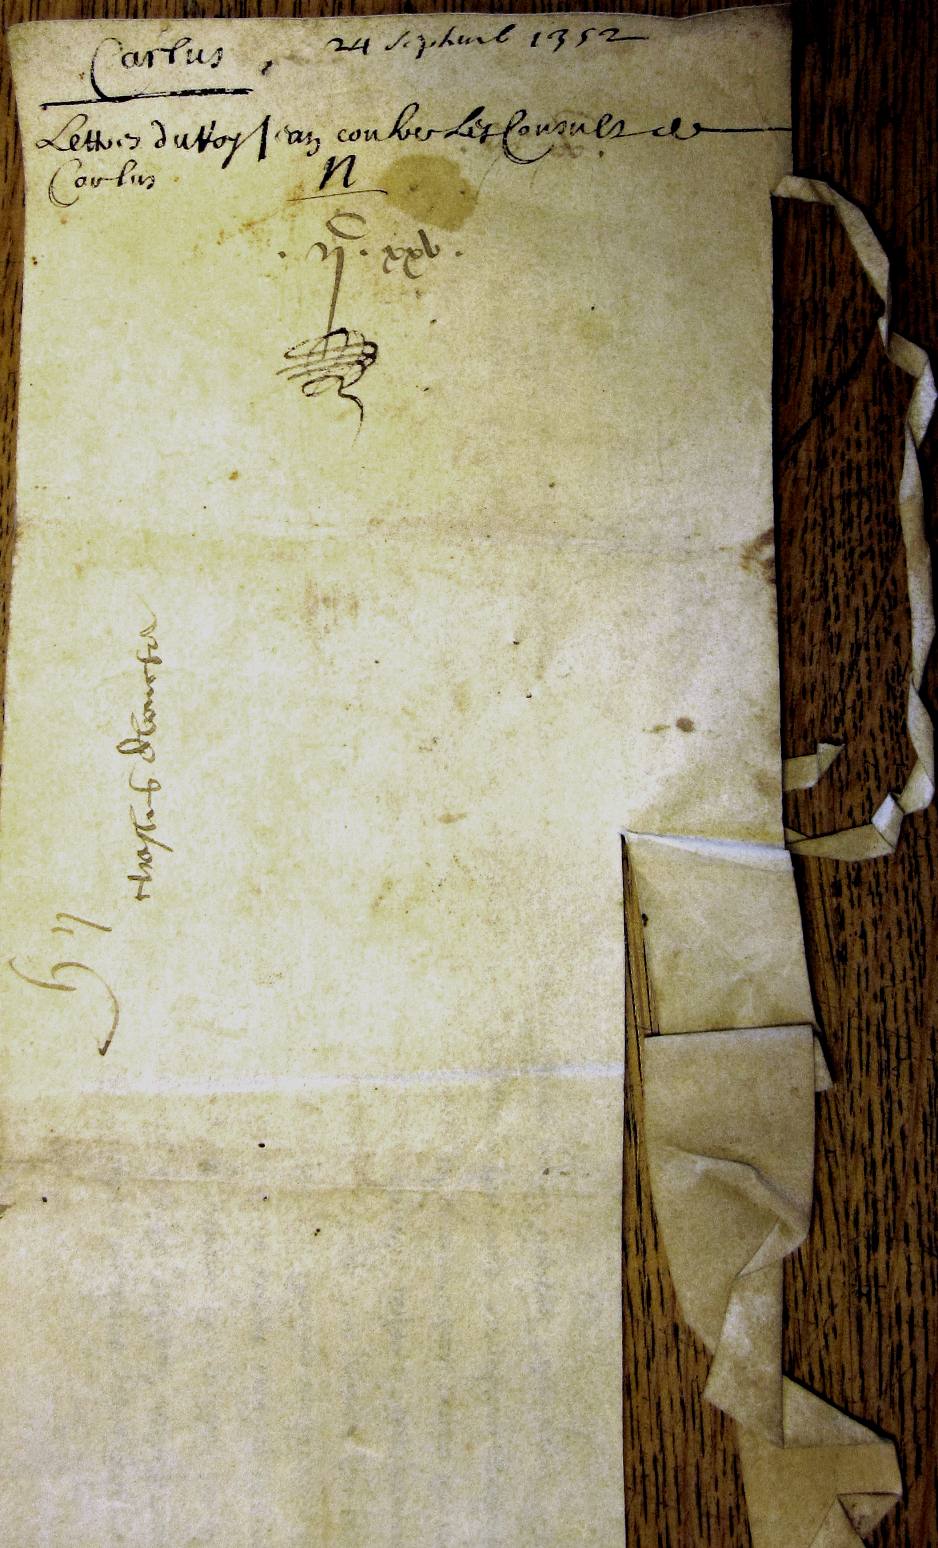 Carlus, 24 septemb 1352
Lettres du Roy Jean contre Les Consuls de
Carlus
N
. ij . xxv .